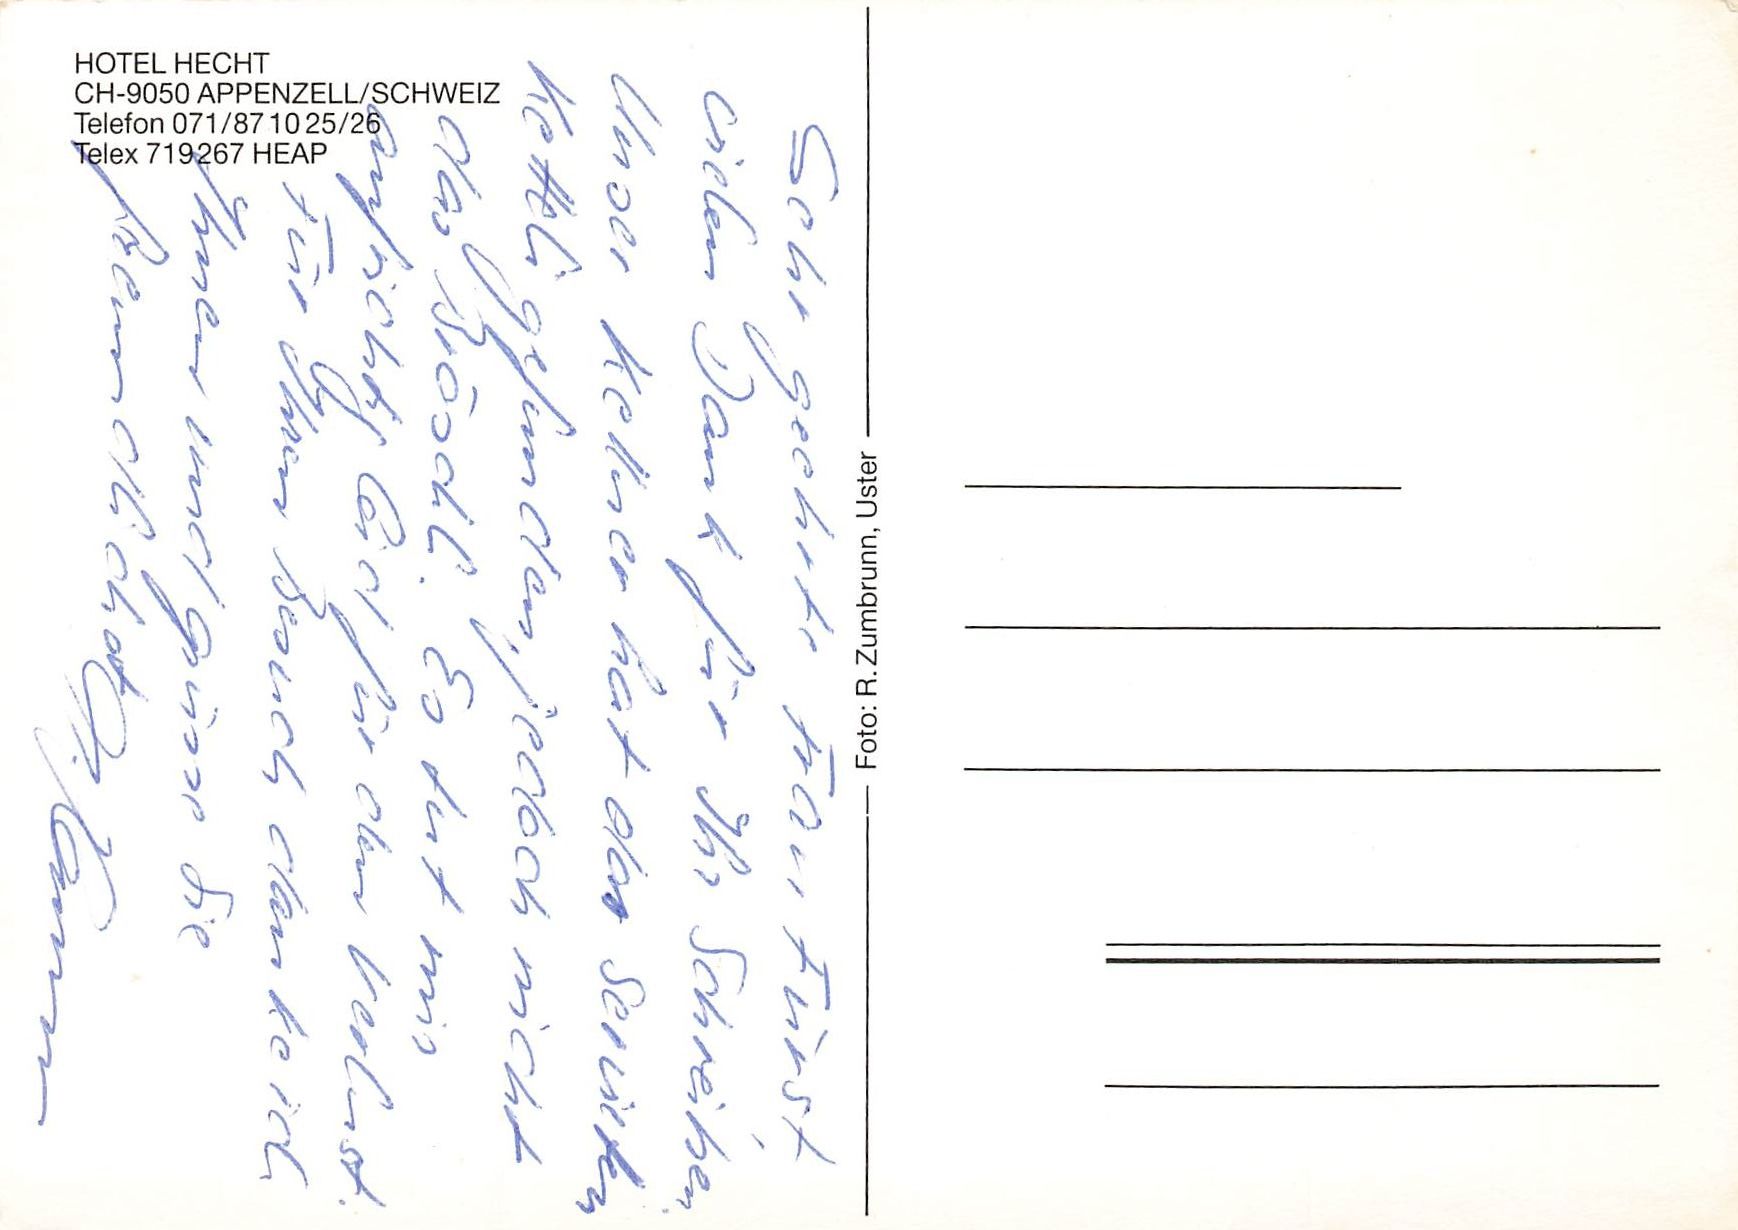 HOTEL HECHT
CH-9050 APPENZELL/SCHWEIZ
Telefon 071/87 10 25/26
Telex 719267 HEAP
Sehr geehrte Frau Fürst,
vielen Dank für Ihr Schreiben.
Unser Kellner hat das Servietten
Kettli gefunden, jedoch nicht
das Bröschli. Es tut mir
aufrichtig leid für den Verlust.
Für Ihren Besuch danke ich
Ihnen und grüsse Sie
freundlichst
Foto: R. Zumbrunn, Uster